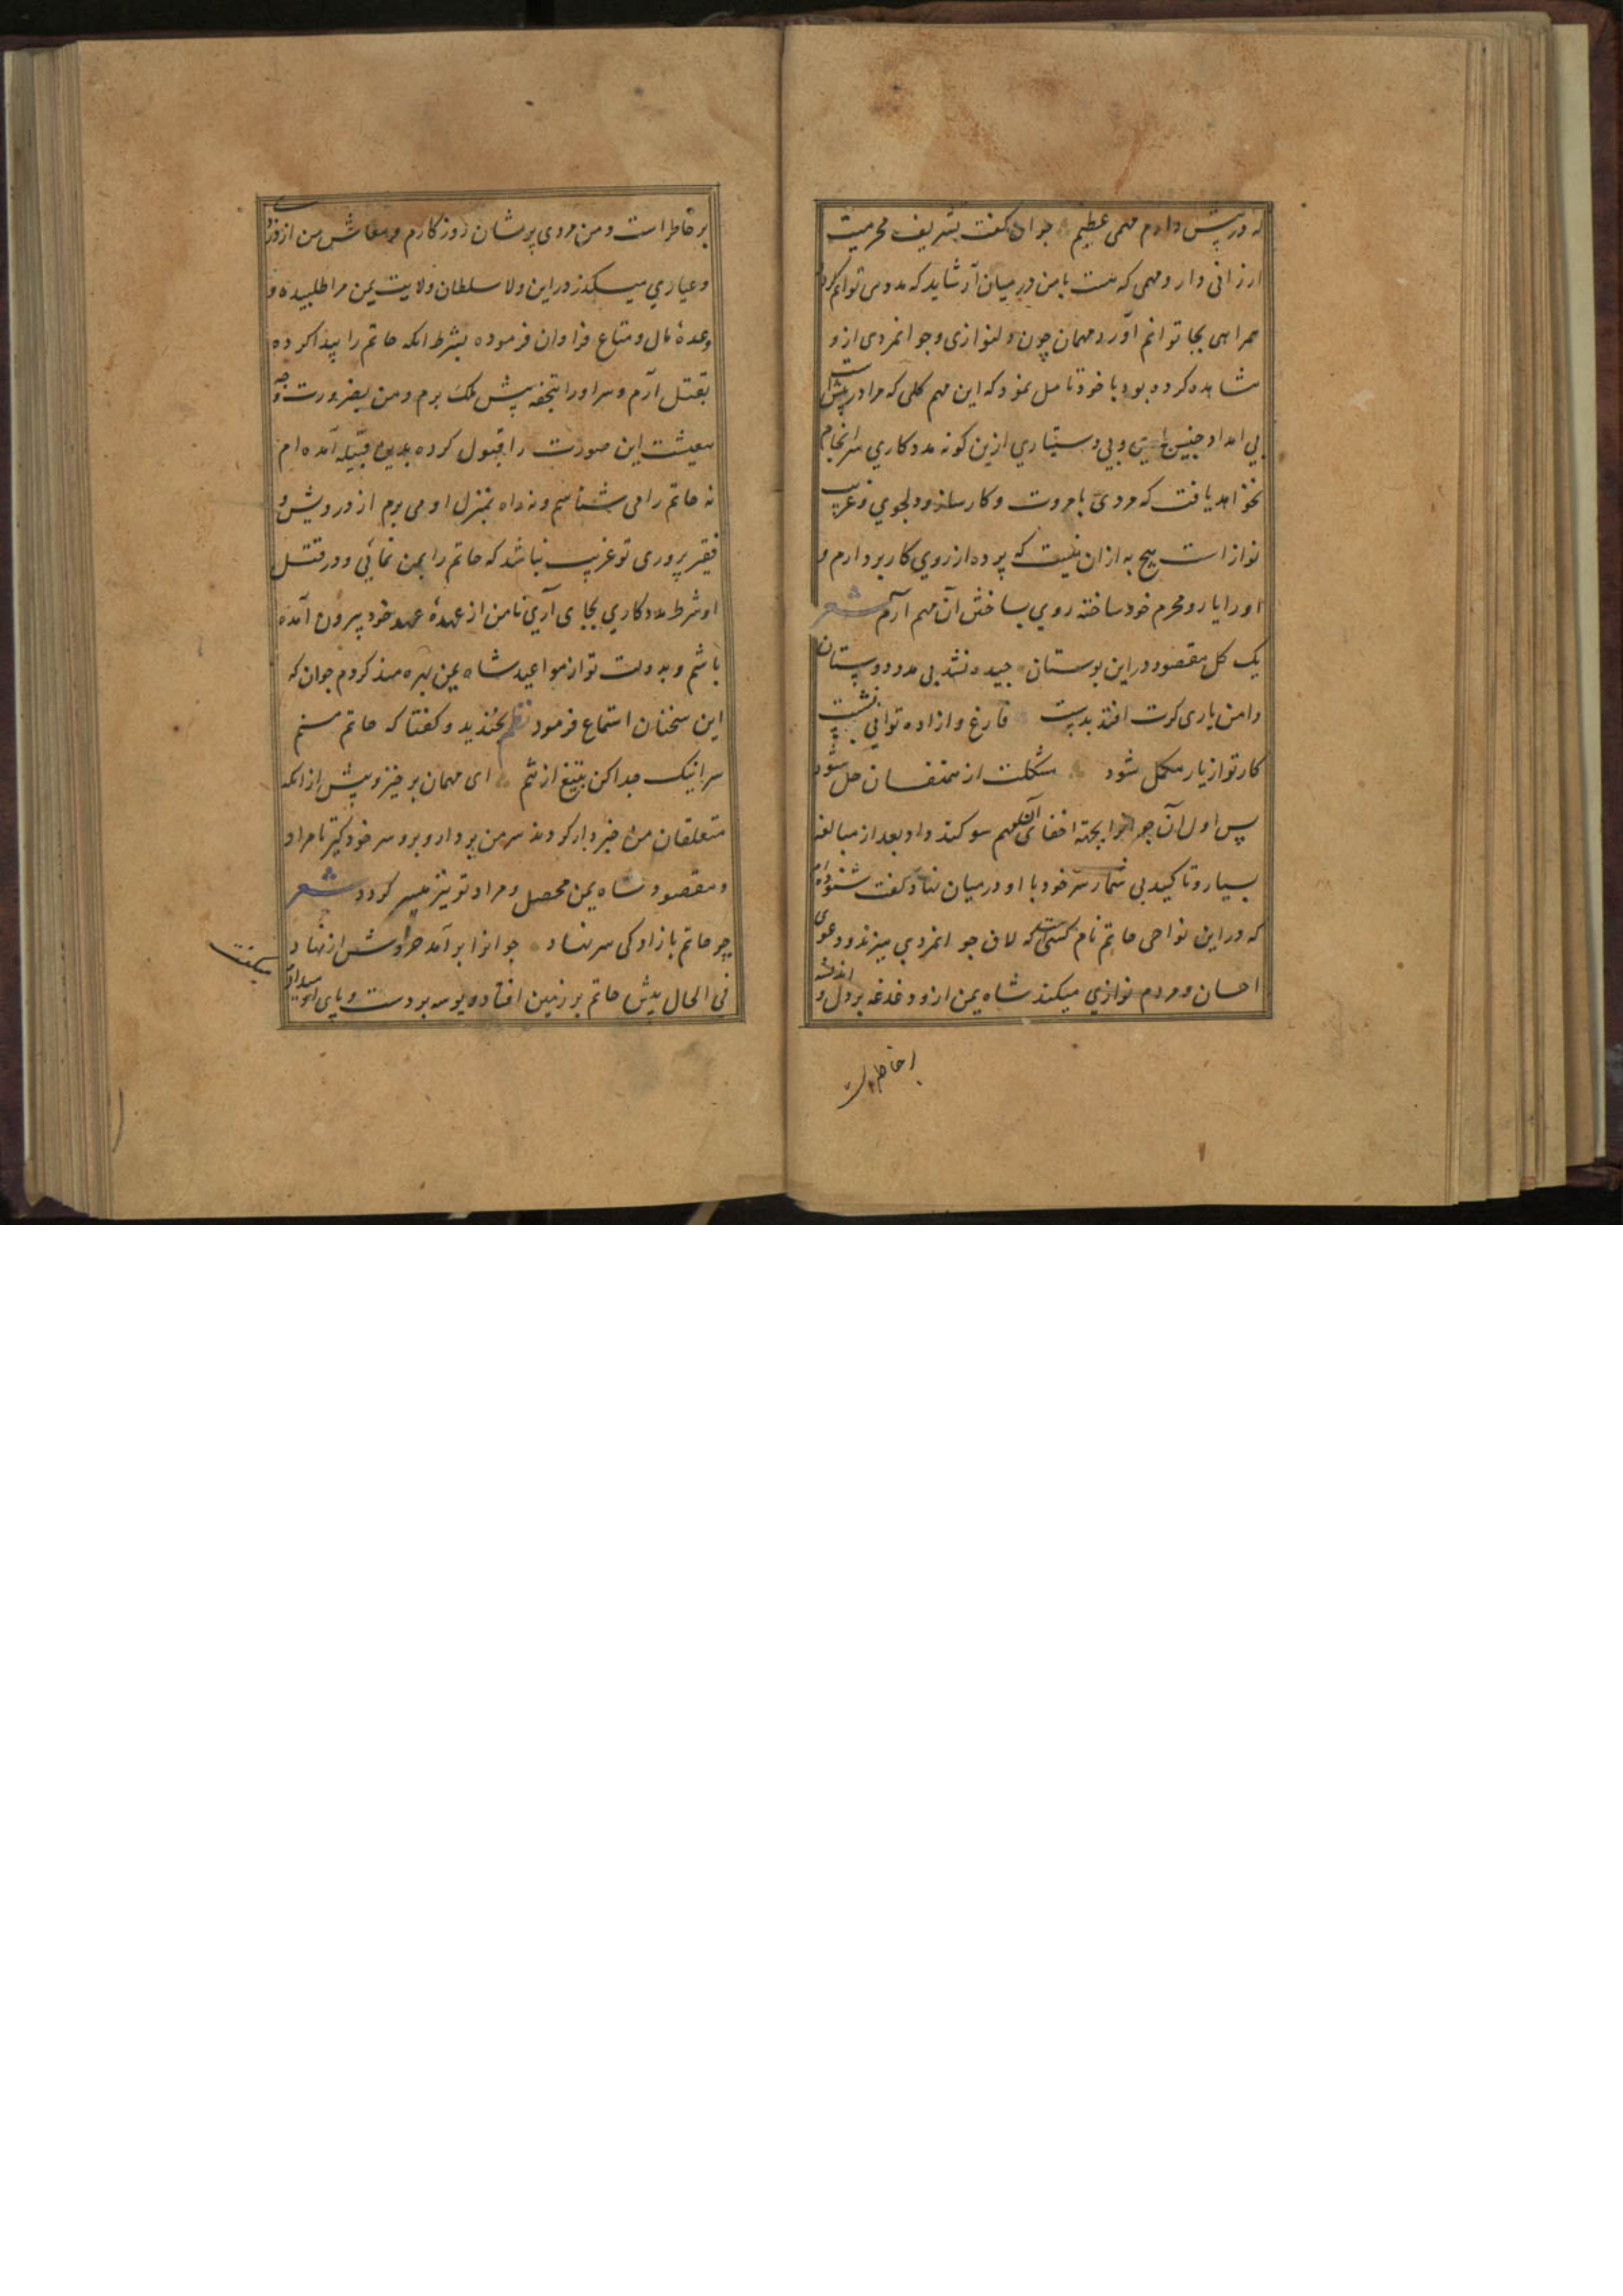 که در پیش دارم مهمی عظیم جوان کفت بتشریف محرمیت
ارزانی دار و مهمی که هست با من در میان آر شاید که مددی توانم کرد و
همراهی بجا توانم آورد مهمان چون دلنوازی و جوانمردی از و
مشاهده کرده بود با خود تامل نمود که این مهم کلی که مرا در پیش است
بی امداد چنین و بی دستیاری ازین کونه مددکاری سرانجام
نخواهد یافت که مردی با مروت و کارساز و دلجوی و غریب
نواز است هیچ به از ان نیست که پرده از روی کار بردارم و
اورا یار و محرم خود ساخته روی بساختن آن مهم آرم شعر
یک کل مقصود در این بوستان چیده نشد بی مدد دوستان
دامن یاری کرت افتد بدست فارغ و ازاده توانی نشست
کار تو از یار مکمل شود مشکلت از همنفسان حل شود
پس اول آن جوانرا بجهة اخفای آن مهم سوکند داد و بعد از مبالغه
بسیار و تاکید بی شمار سر خود با او در میان نهاد و کفت شنوده‌ام
که در این نواحی حاتم نام کسی که لاف جوانمردی میزند و دعوی
احسان و مردم نوازی میکند شاه یمن را از و دغدغه بر دل و اندیشه
بر خاطر است
بر خاطر است و من مردی پریشان روزکارم و معاش من از دزدی
و عیاری میکذرد در این ولا سلطان ولایت یمن مرا طلبیده و
وعدهٔ مال و متاع فراوان فرموده بشرط انکه حاتم را پیدا کرده
بقتل آرم و سر اورا بتحفه پیش ملک برم و من بضرورت وجه
معیشت این صورت را قبول کرده بدین قبیله آمده ام
نه حاتم را می شناسم و نه راه بمنزل او می برم از درویش و
فقیر پروری تو غریب نباشد که حاتم را بمن نمائی و در قتل
او شرط مددکاری بجای آری تا من از عهدهٔ عهد خود بیرون آمده
باشم و بدولت تو از مواعید شاه یمن بهره مند کردم جوان که
این سخنان استماع فرمود نظم بخندید و کفتا که حاتم منم
سر اینک جدا کن بتیغ از تنم ای مهمان برخیز و پیش از انکه
متعلقان من خبردار کردند سر من بردار و برو سر خود کیر تا مراد
و مقصود شاه یمن محصل و مراد تو نیز میسر کردد شعر
چو حاتم بازادکی سر نهاد جوانرا برآمد خروش از نهاد
فی الحال پیش حاتم بر زمین افتاده بوسه بر دست و پای او میداد و
میکفت